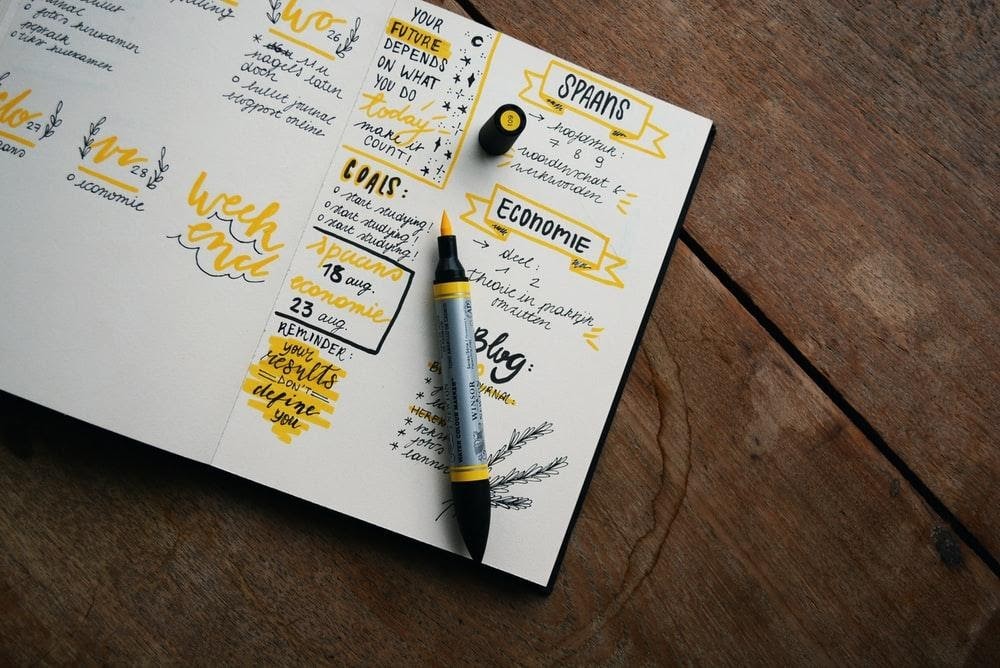 o foto's herexamen
o tekst herexamen
wo 26
* 11 u
nagels laten
doen
o bullet journal
blogpost online
do 27
vr 28
o economie
week
end
YOUR
FUTURE
DEPENDS
ON WHAT
YOU DO
today
make it
COUNT!
GOALS:
o start studying!
o start studying!
o start studying!
spaans
18 aug.
economie
23 aug.
REMINDER:
your
results
DON'T
define
you
SPAANS
→ hoofdstuk:
7 8 9
woordenschat &
werkwoorden
ECONOMIE
→ deel:
1 2
theorie in praktijk
omzetten
Blog:
JOURNAL:
HEREX
* tekst
* foto's
* banner
109
WATER COLOUR MARKER
WINSOR